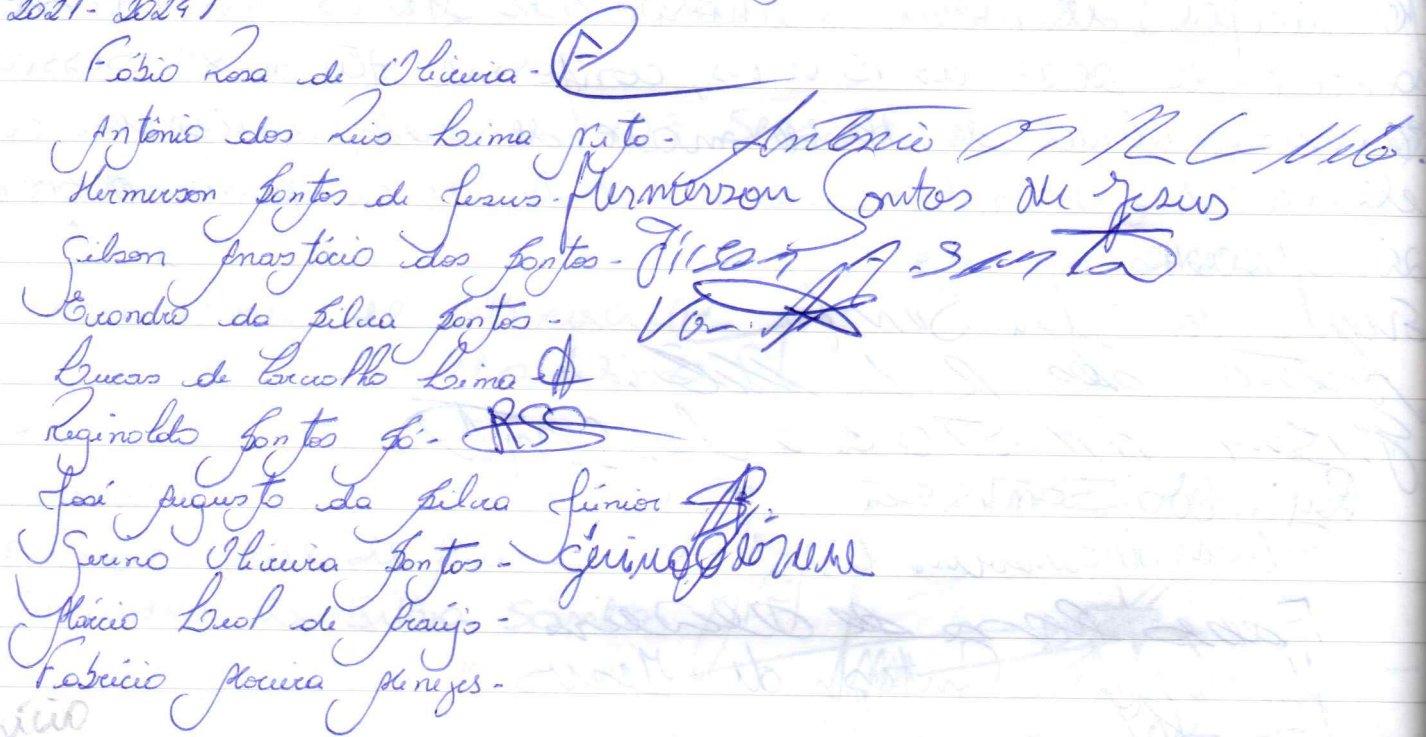 2021 - 2024
Fábio Rosa de Oliveira -
Antônio dos Reis Lima Neto - Antonio Neto
Hermerson Santos de Jesus - Hermerson Santos de Jesus
Gilson Anastácio dos Santos - Gilson A. Santos
Evandro da Silva Santos -
Lucas de Carvalho Lima -
Reginaldo Santos Sá - RSS
José Augusto da Silva Júnior
Gerino Oliveira Santos - Gerino
Márcio Leal de Araújo -
Fabrício Moreira Menezes -